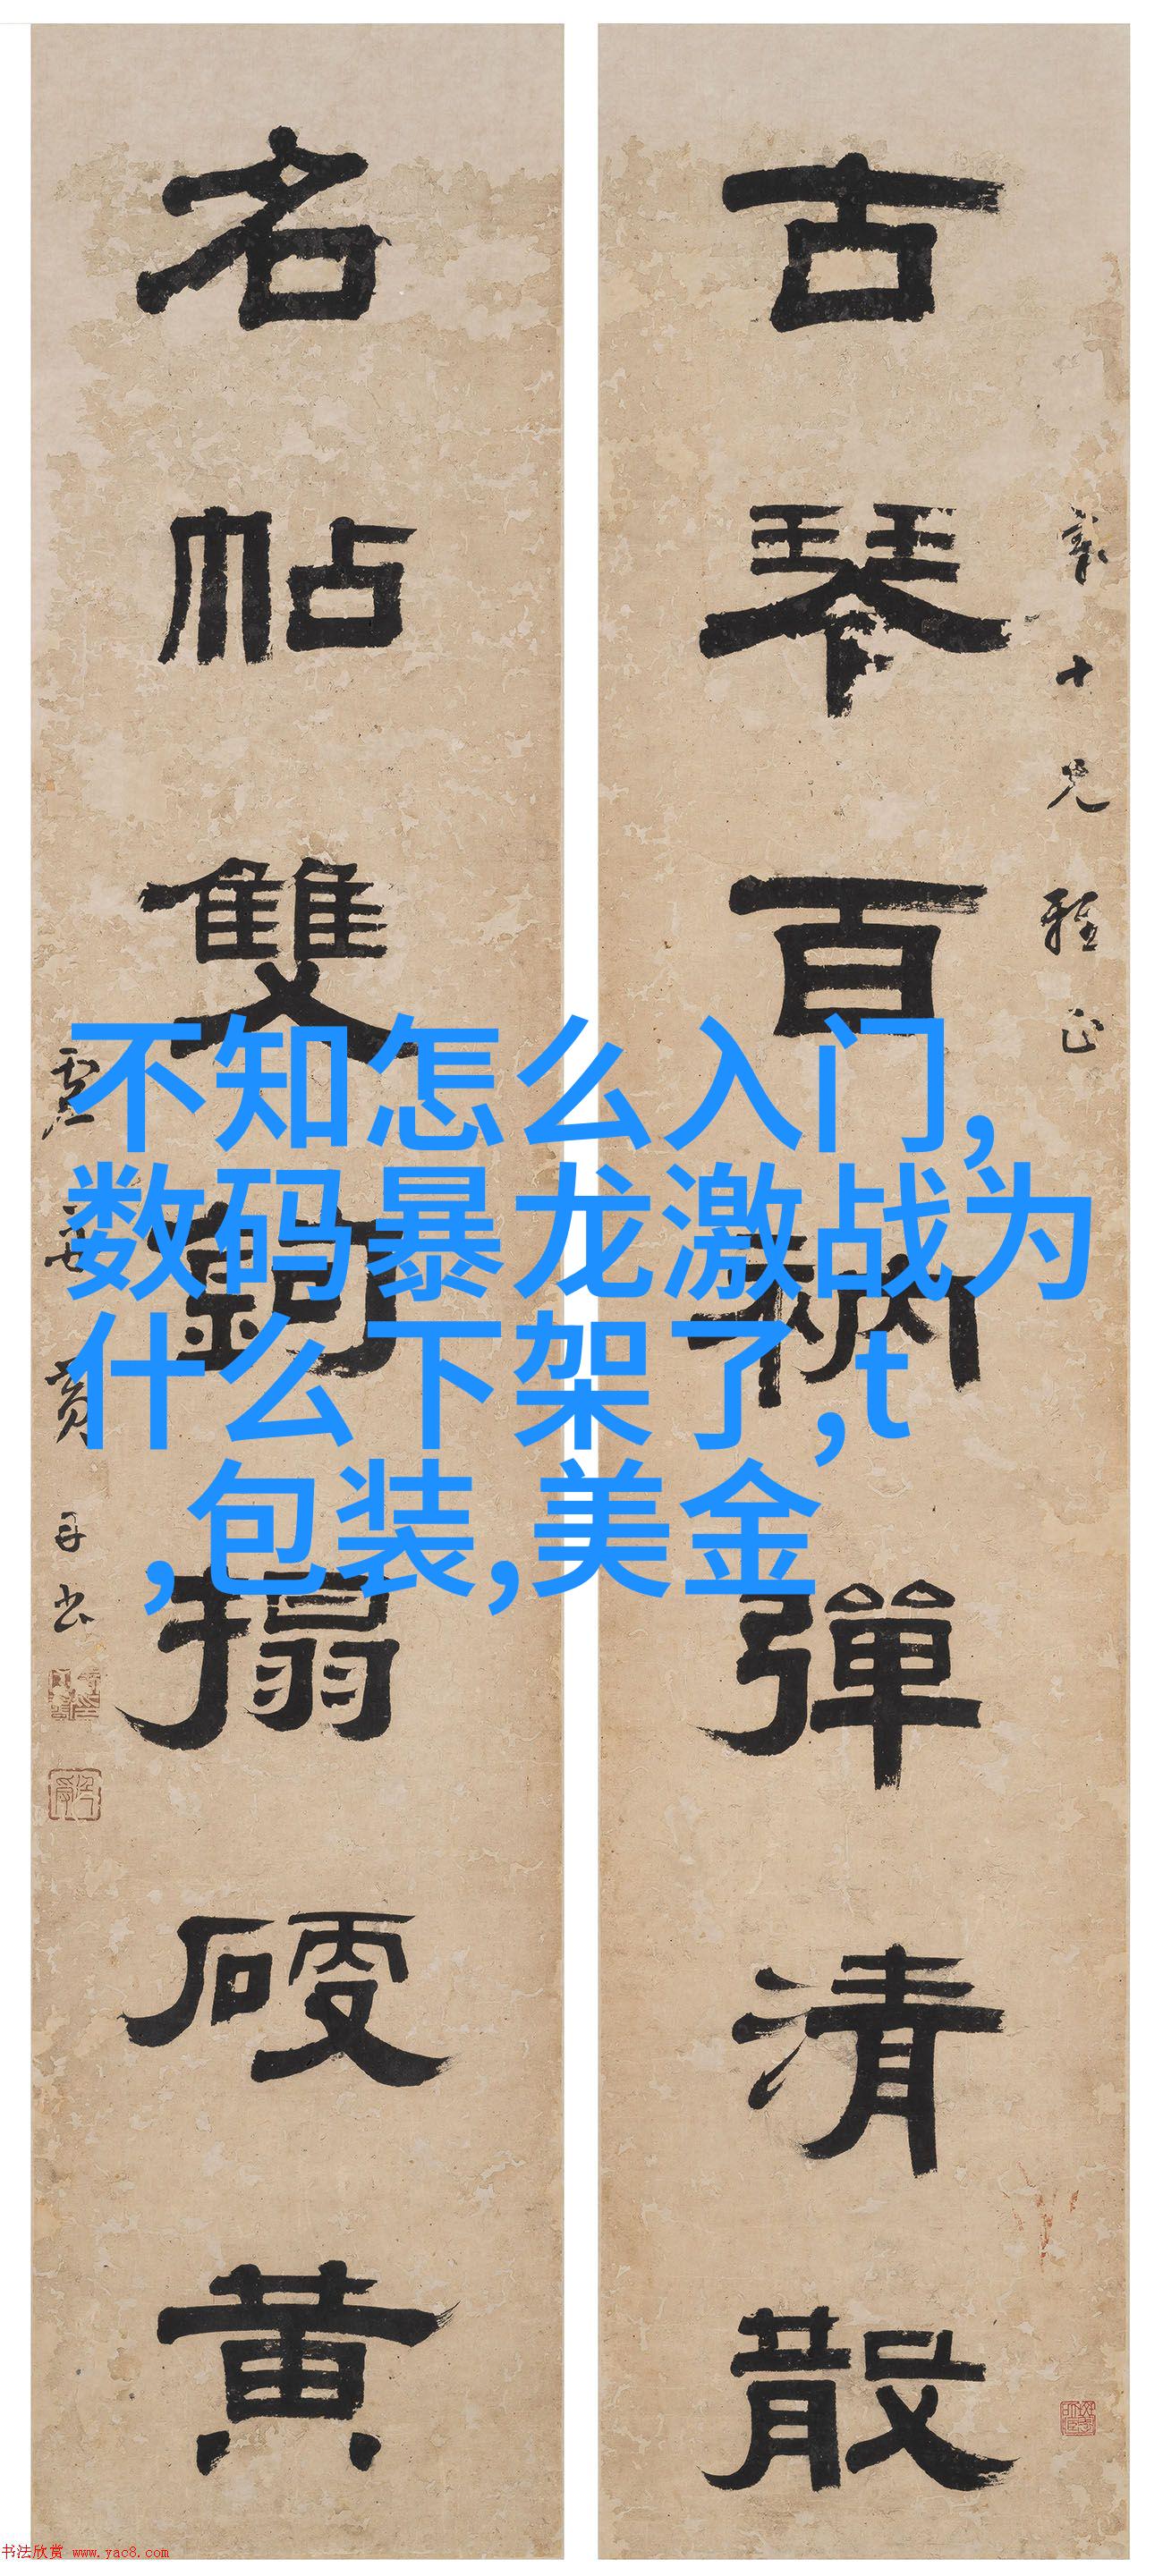 古琴百衲彈清散
名帖雙鉤搨硬黃
十兄雅正
不知怎么入门,
数码暴龙激战为
什么下架了,t
,包装,美金
书法欣赏 www.yac8.com